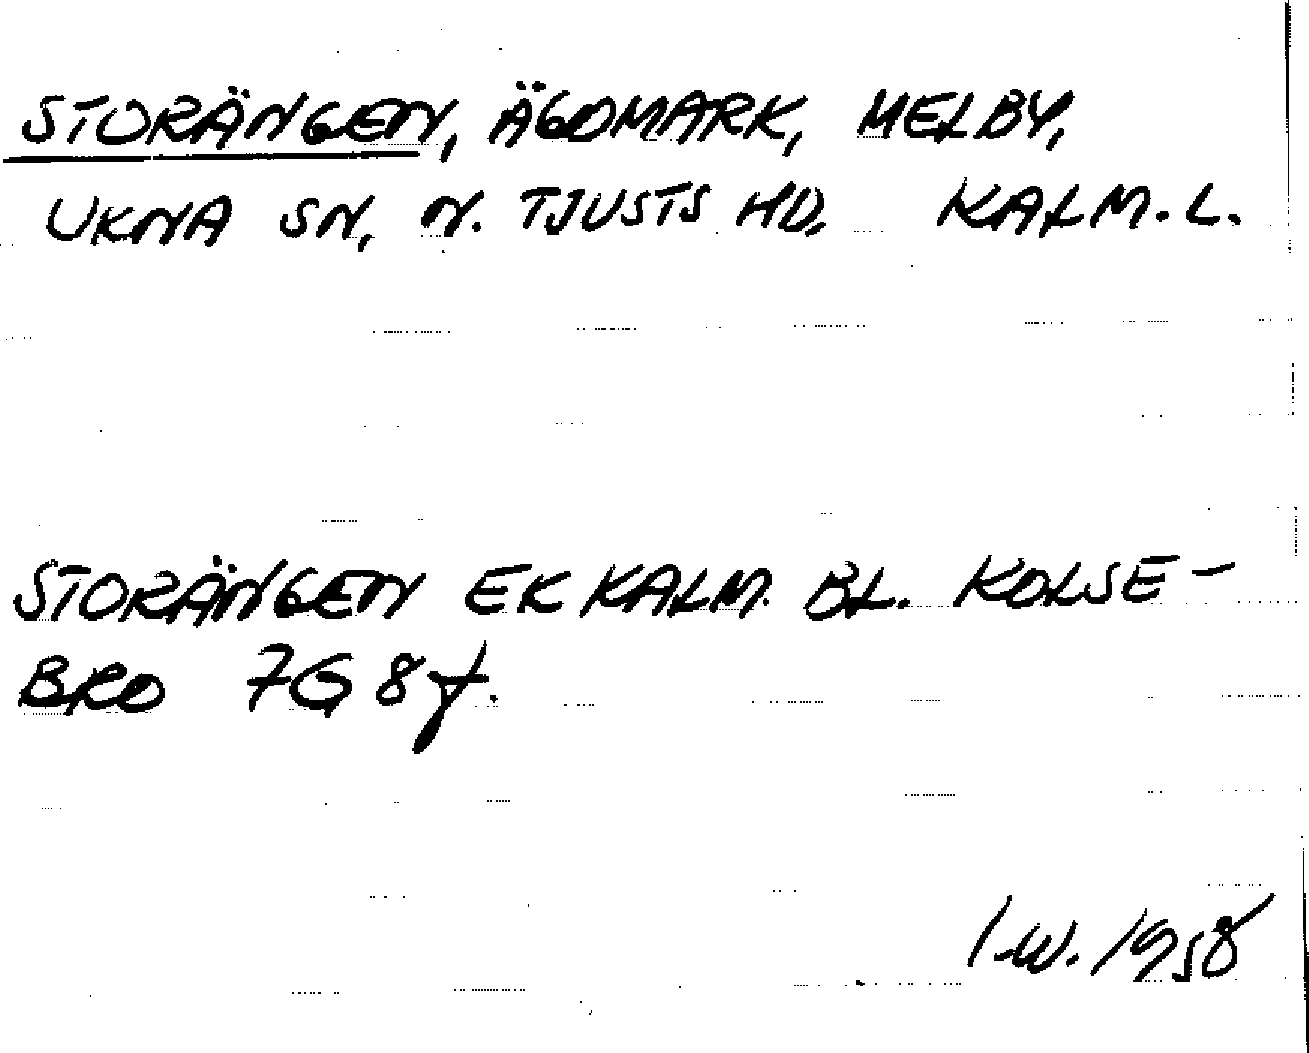 STORÄNGEN, ÄGOMARK, MELBY,
UKNA SN, N. TJUSTS HD, KALM. L.
STORÄNGEN EK KALM. BL. KOLSE-
BRO 7G 8f.
I.W. 1958